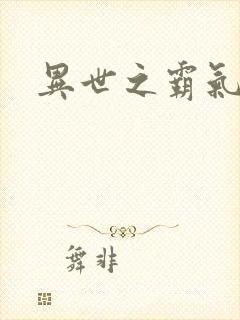 異世之霸氣
舞非